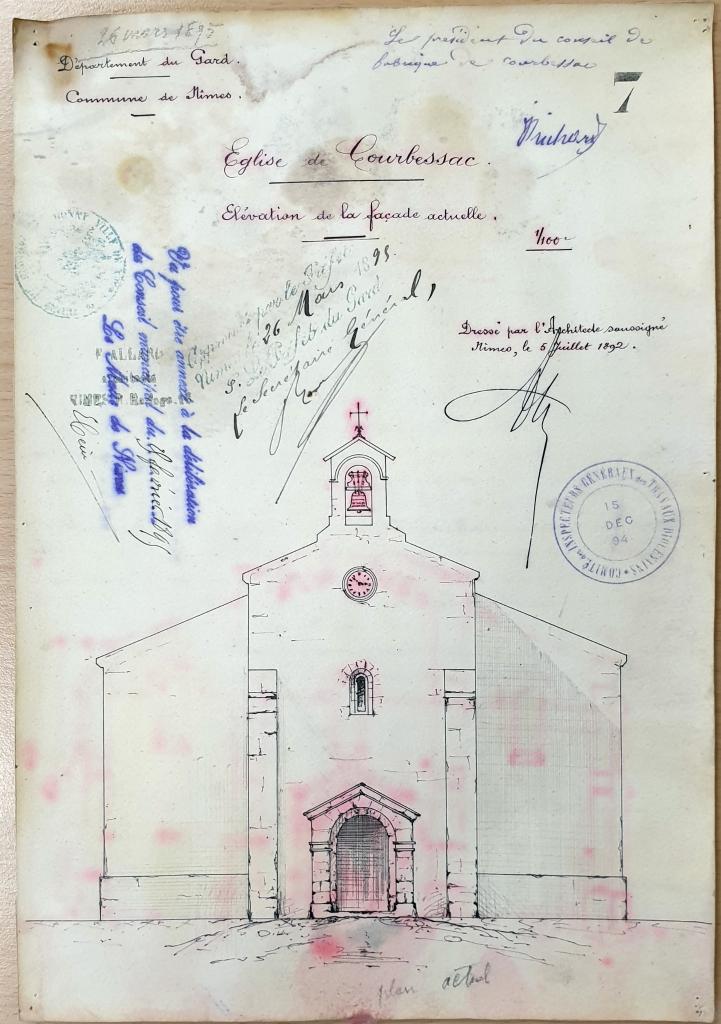 26 mars 1895
Le président du conseil de
fabrique de courbessac
Département du Gard.
Commune de Nîmes.
7
Eglise de Courbessac.
Elévation de la façade actuelle.
1/100e
Vu pour être annexé à la délibération
du Conseil municipal du
Le Maire de Nîmes
pour le Préfet
26 Mars 1895.
du Gard
Le Secrétaire Général,
Dressé par l'Architecte soussigné
Nîmes, le 5 Juillet 1892.
COMITÉ des INSPECTEURS GÉNÉRAUX des TRAVAUX DIOCÉSAINS
15
DEC
94
plan actuel